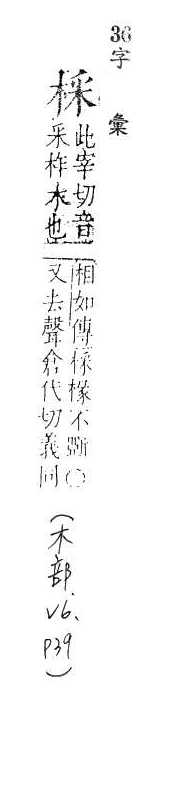 36字彙
採此宰切音
采柞木也
相如傳採椽不斲〇
又去聲倉代切義同
(木部.V6.P39)